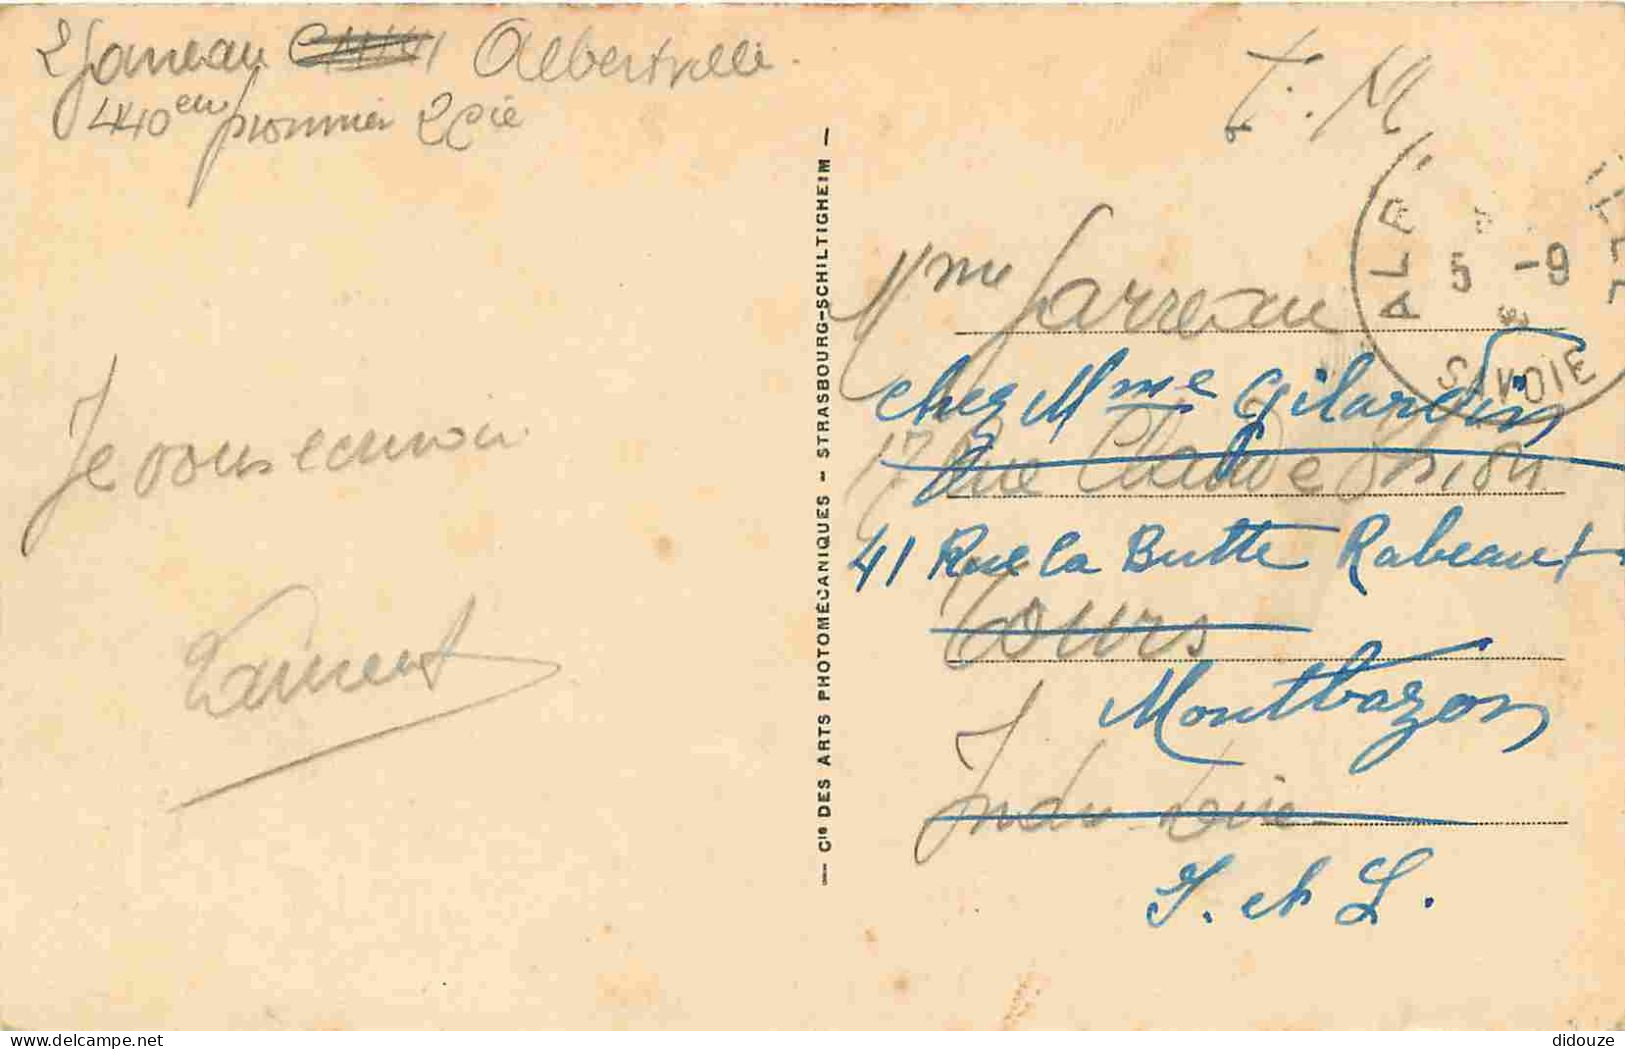 Albertville
440em pionnier 2 Cie
Je vous ecrirai
Laurent
— Cie DES ARTS PHOTOMÉCANIQUES - STRASBOURG-SCHILTIGHEIM —
F. M
5 -9
SAVOIE
Mme Jarreau
chez Mme Gilardin
17 Rue Claude
41 Rue la Butte Rabeaut
Tours
Montbazon
Indre Loire
I. et L.
didouze